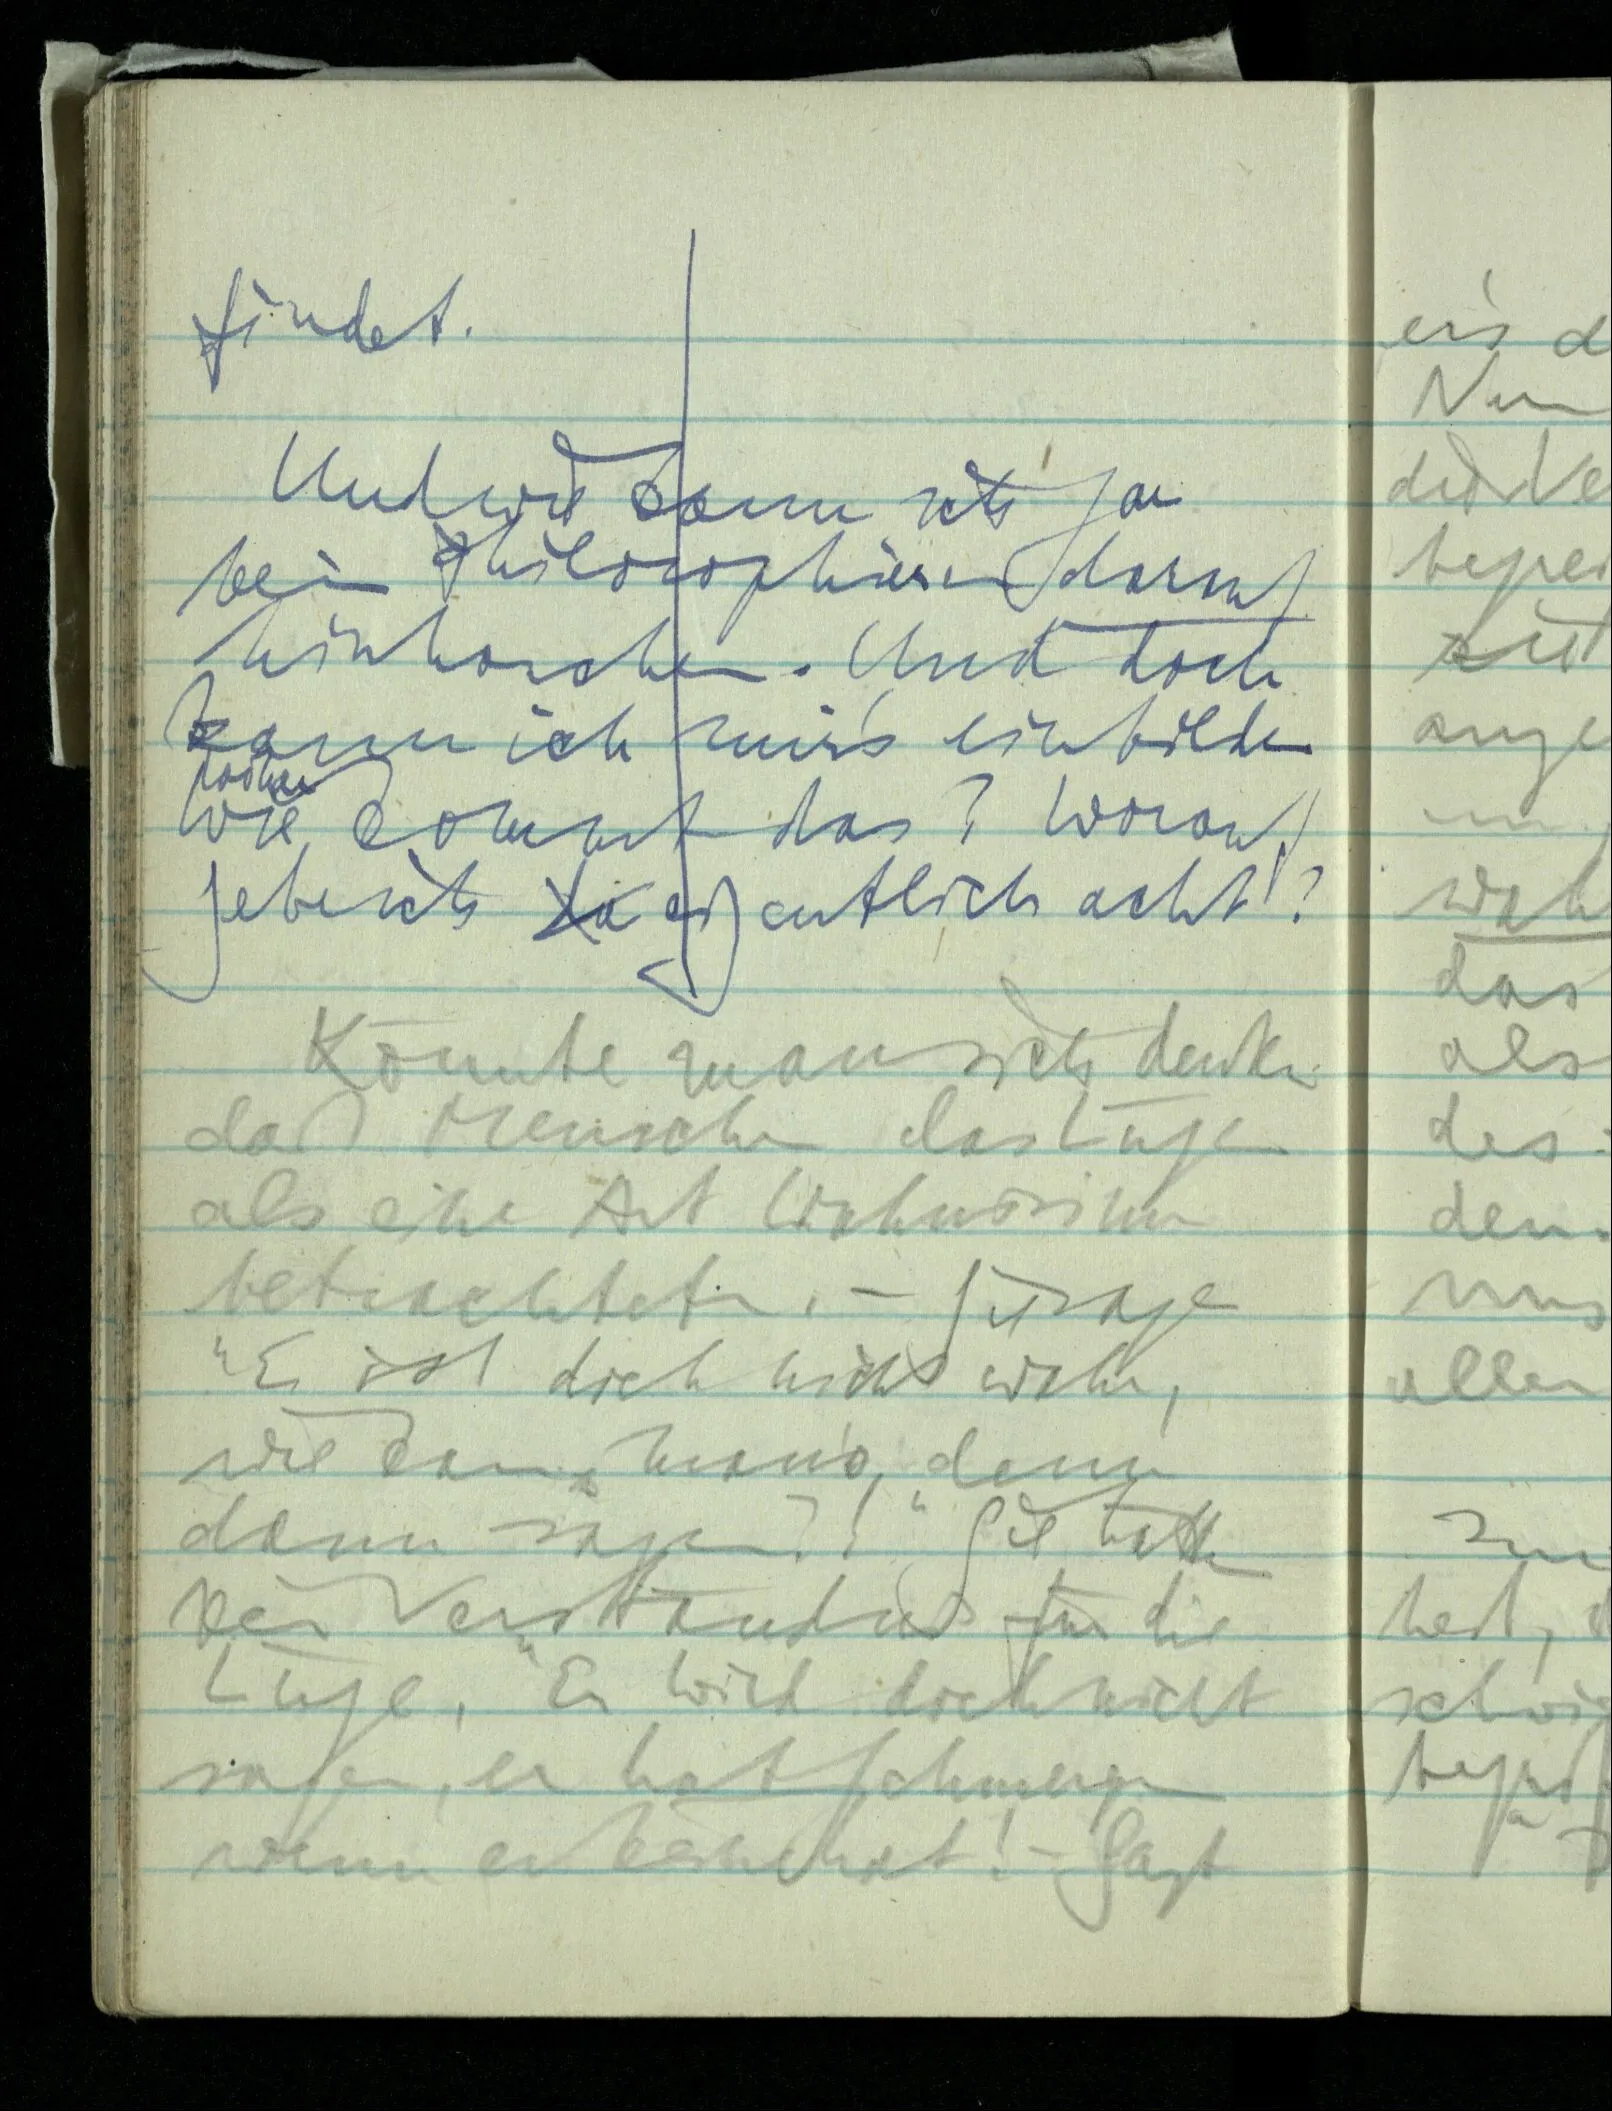 findet.
Und wie kann ich gar
beim Philosophieren darauf
hinhorchen. Und doch
kann ich mir's einbilden
woher
Wie kommt das? Worauf
gebe ich da eigentlich acht?
Könnte man sich denken
daß Menschen das Lügen
als eine Art Wahnsinn
betrachteten. – Sie sagen
"Es ist doch nicht wahr,
wie kann man's denn
dann sagen?!" Sie hätten
kein Verständnis für die
Lüge. "Er wird doch nicht
sagen, er hat Schmerzen
wenn er keine hat! – Sagt
er's d
das
als
des
den
uns